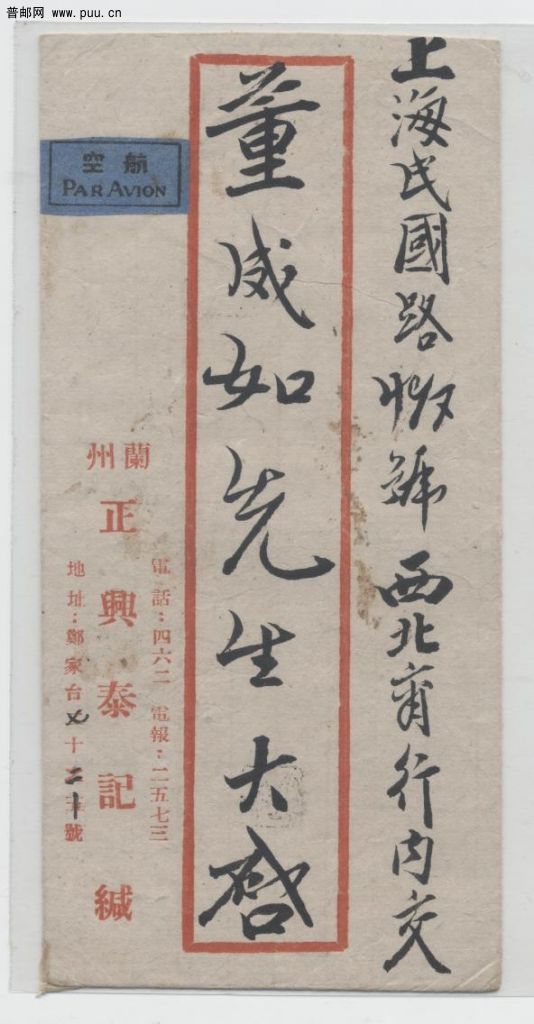 普邮网 www.puu.cn
上海民國路號西北商行内交
董威如先生大啓
航空
PAR AVION
蘭州
正興泰記緘
電話：四六二 電報：二五七三
地址：鄭家台十二號